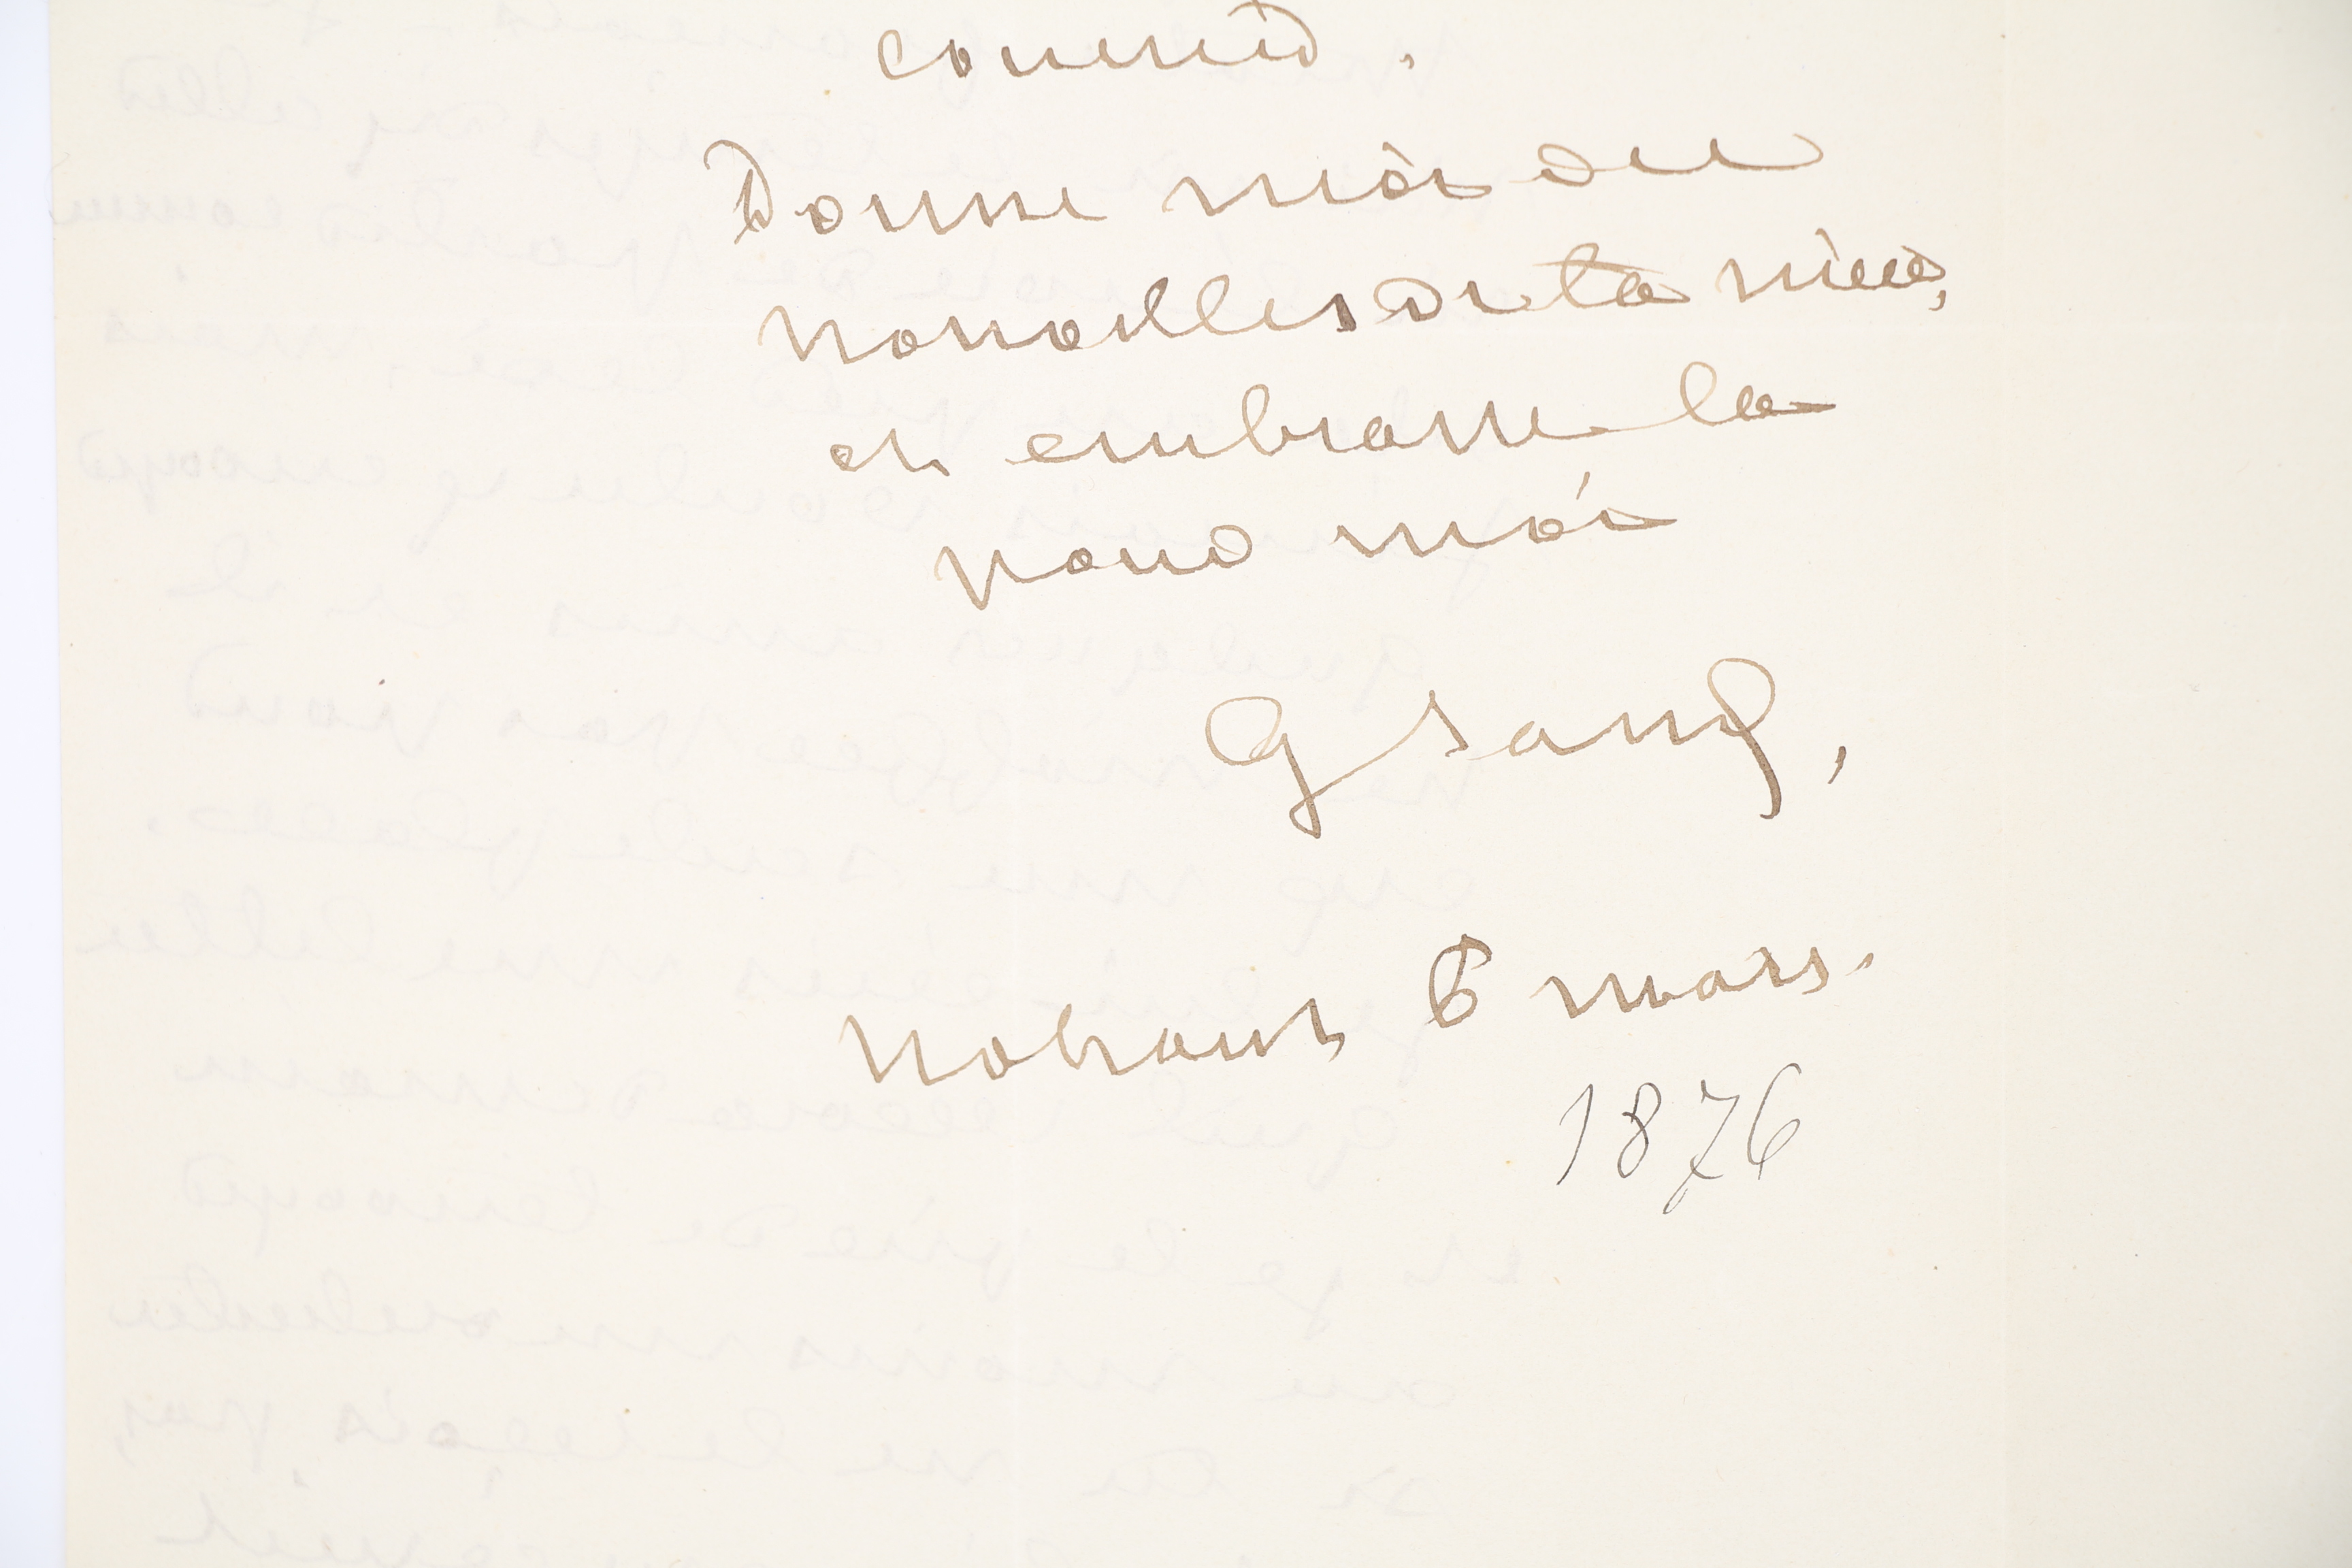 Donne moi des
nouvelles de ta nièce,
et embrasse la
pour moi
G Sand,
Nohant 6 mars.
1876